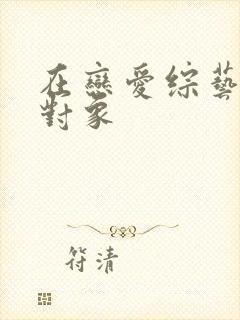 在戀愛綜藝
對象
符清